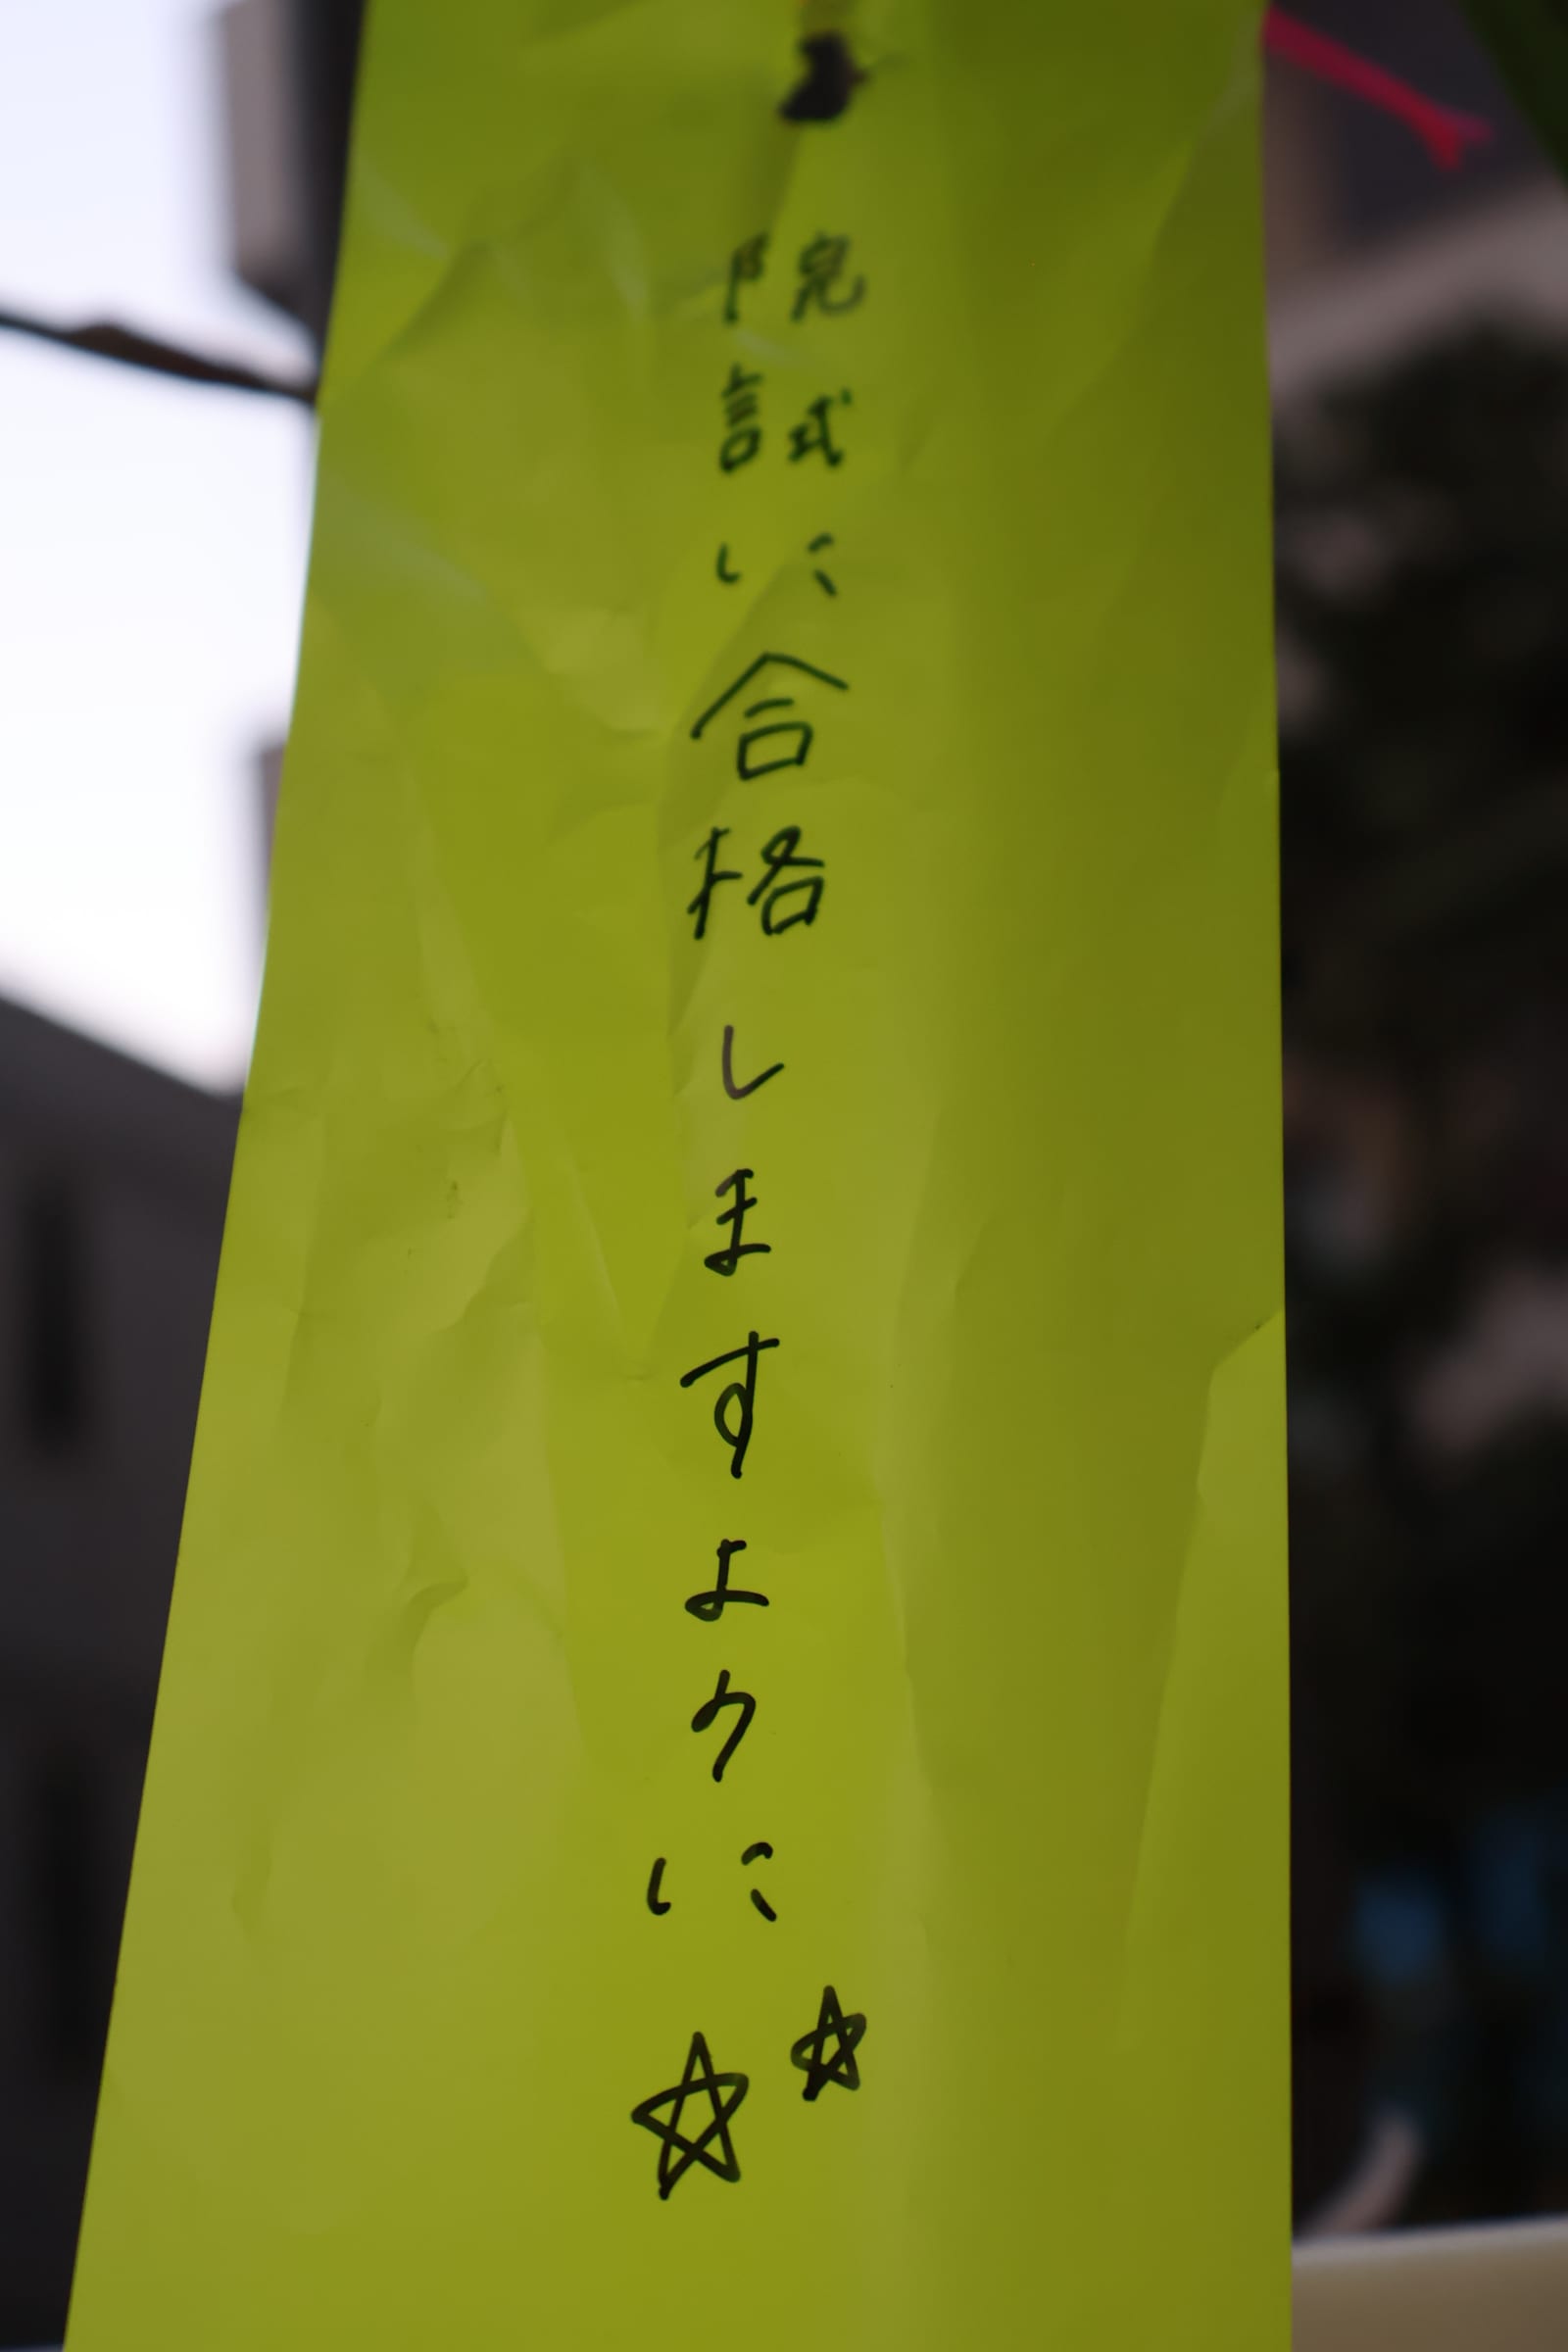 院試に合格しますように☆☆